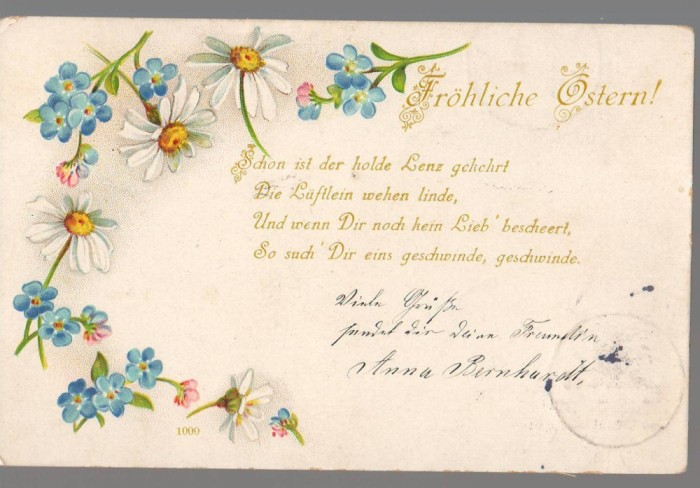 Fröhliche Ostern!
Schon ist der holde Lenz gekehrt
Die Lüftlein wehen linde,
Und wenn Dir noch kein Lieb' bescheert,
So such' Dir eins geschwinde, geschwinde.
Viele Grüße
sendet dir deine Freundin
Anna Bernhardt,
1000